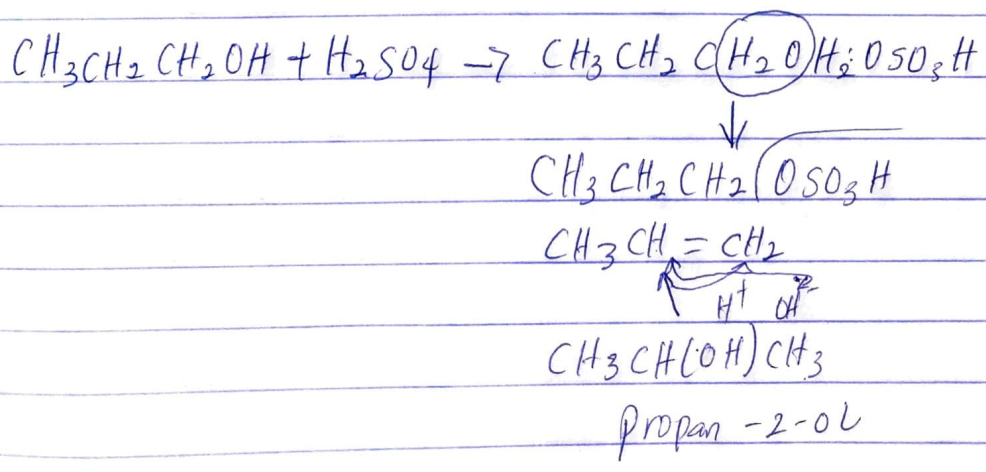 CH₃CH₂CH₂OH + H₂SO₄ → CH₃CH₂CH₂OH₂:OSO₃H
↓
CH₃CH₂CH₂OSO₃H
CH₃CH = CH₂
H⁺ OH⁻
CH₃CH(OH)CH₃
propan-2-ol